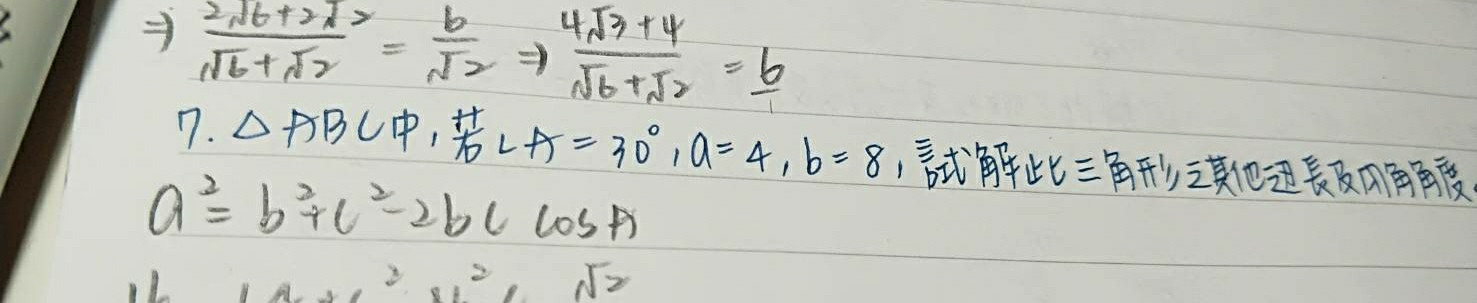 ⇒ (2√6+2√2)/(√6+√2) = b/√2 ⇒ (4√3+4)/(√6+√2) = b/1
7. △ABC中,若∠A=30°,a=4,b=8,試解此三角形之其他邊長及內角角度.
a²=b²+c²-2bc cosA